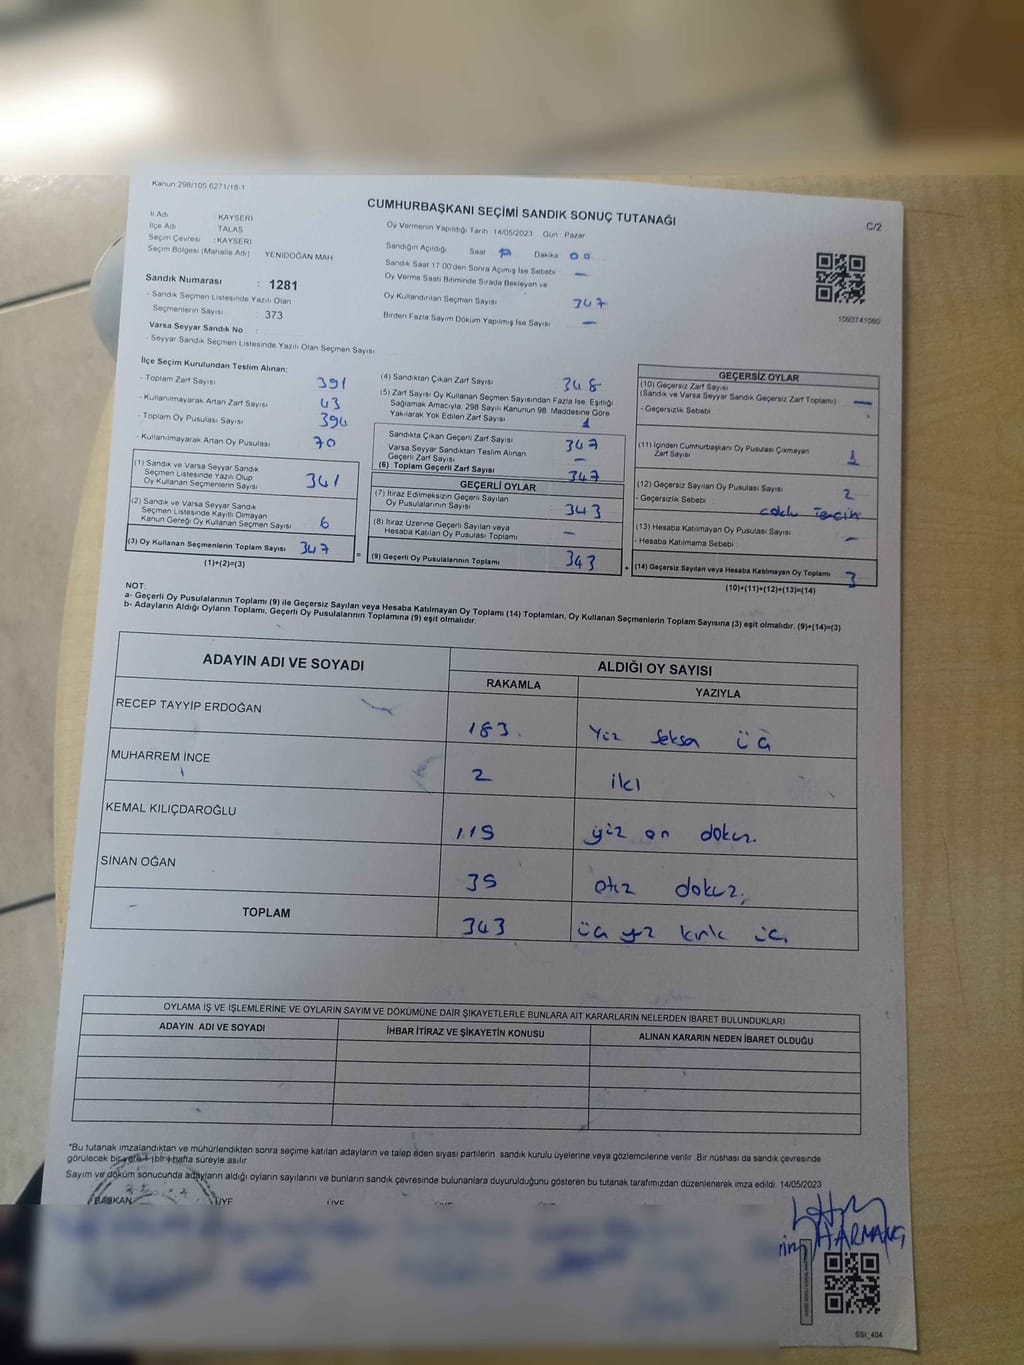 Kanun:298/105.6271/18-1
CUMHURBAŞKANI SEÇİMİ SANDIK SONUÇ TUTANAĞI
C/2
İl Adı KAYSERİ
İlçe Adı TALAS
Seçim Çevresi : KAYSERİ
Seçim Bölgesi (Mahalle Adı) YENİDOĞAN MAH
Sandık Numarası : 1281
- Sandık Seçmen Listesinde Yazılı Olan
Seçmenlerin Sayısı : 373
Varsa Seyyar Sandık No :
- Seyyar Sandık Seçmen Listesinde Yazılı Olan Seçmen Sayısı
Oy Vermenin Yapıldığı Tarih 14/05/2023 Gün : Pazar
Sandığın Açıldığı Saat Dakika 00
Sandık Saat 17.00'den Sonra Açılmış İse Sebebi —
Oy Verme Saati Bitiminde Sırada Bekleyen ve
Oy Kullandırılan Seçmen Sayısı 347
Birden Fazla Sayım Döküm Yapılmış İse Sayısı —
1093741060
İlçe Seçim Kurulundan Teslim Alınan:
- Toplam Zarf Sayısı 391
- Kullanılmayarak Artan Zarf Sayısı 43
- Toplam Oy Pusulası Sayısı 394
- Kullanılmayarak Artan Oy Pusulası 70
(1) Sandık ve Varsa Seyyar Sandık
Seçmen Listesinde Yazılı Olup
Oy Kullanan Seçmenlerin Sayısı 341
(2) Sandık ve Varsa Seyyar Sandık
Seçmen Listesinde Kayıtlı Olmayan
Kanun Gereği Oy Kullanan Seçmen Sayısı 6
(3) Oy Kullanan Seçmenlerin Toplam Sayısı 347
(1)+(2)=(3)
(4) Sandıktan Çıkan Zarf Sayısı 348
(5) Zarf Sayısı Oy Kullanan Seçmen Sayısından Fazla İse, Eşitliği
Sağlamak Amacıyla, 298 Sayılı Kanunun 98. Maddesine Göre
Yakılarak Yok Edilen Zarf Sayısı 1
Sandıkta Çıkan Geçerli Zarf Sayısı 347
Varsa Seyyar Sandıktan Teslim Alınan
Geçerli Zarf Sayısı —
(6) Toplam Geçerli Zarf Sayısı 347
GEÇERLİ OYLAR
(7) İtiraz Edilmeksizin Geçerli Sayılan
Oy Pusulalarının Sayısı 343
(8) İtiraz Üzerine Geçerli Sayılan veya
Hesaba Katılan Oy Pusulası Toplamı —
(9) Geçerli Oy Pusulalarının Toplamı 343
GEÇERSİZ OYLAR
(10) Geçersiz Zarf Sayısı
(Sandık ve Varsa Seyyar Sandık Geçersiz Zarf Toplamı) —
- Geçersizlik Sebebi
(11) İçinden Cumhurbaşkanı Oy Pusulası Çıkmayan
Zarf Sayısı 1
(12) Geçersiz Sayılan Oy Pusulası Sayısı 2
- Geçersizlik Sebebi çoklu Tercih
(13) Hesaba Katılmayan Oy Pusulası Sayısı —
- Hesaba Katılmama Sebebi
(14) Geçersiz Sayılan veya Hesaba Katılmayan Oy Toplamı 3
(10)+(11)+(12)+(13)=(14)
NOT:
a- Geçerli Oy Pusulalarının Toplamı (9) ile Geçersiz Sayılan veya Hesaba Katılmayan Oy Toplamı (14) Toplamları, Oy Kullanan Seçmenlerin Toplam Sayısına (3) eşit olmalıdır. (9)+(14)=(3)
b- Adayların Aldığı Oyların Toplamı, Geçerli Oy Pusulalarının Toplamına (9) eşit olmalıdır.
ADAYIN ADI VE SOYADI ALDIĞI OY SAYISI
RAKAMLA YAZIYLA
RECEP TAYYİP ERDOĞAN 183 Yüz Seksen üç
MUHARREM İNCE 2 iki
KEMAL KILIÇDAROĞLU 119 yüz on dokuz.
SİNAN OĞAN 39 otuz dokuz,
TOPLAM 343 üç yüz kırk üç
OYLAMA İŞ VE İŞLEMLERİNE VE OYLARIN SAYIM VE DÖKÜMÜNE DAİR ŞİKAYETLERLE BUNLARA AİT KARARLARIN NELERDEN İBARET BULUNDUKLARI
ADAYIN ADI VE SOYADI İHBAR İTİRAZ VE ŞİKAYETİN KONUSU ALINAN KARARIN NEDEN İBARET OLDUĞU
*Bu tutanak imzalandıktan ve mühürlendikten sonra seçime katılan adayların ve talep eden siyasi partilerin sandık kurulu üyelerine veya gözlemcilerine verilir. Bir nüshası da sandık çevresinde
görülecek bir yere 1 (bir) hafta süreyle asılır
Sayım ve döküm sonucunda adayların aldığı oyların sayılarını ve bunların sandık çevresinde bulunanlara duyurulduğunu gösteren bu tutanak tarafımızdan düzenlenerek imza edildi. 14/05/2023
BAŞKAN ÜYE ÜYE ÜYE
HARMANC
SSI_404